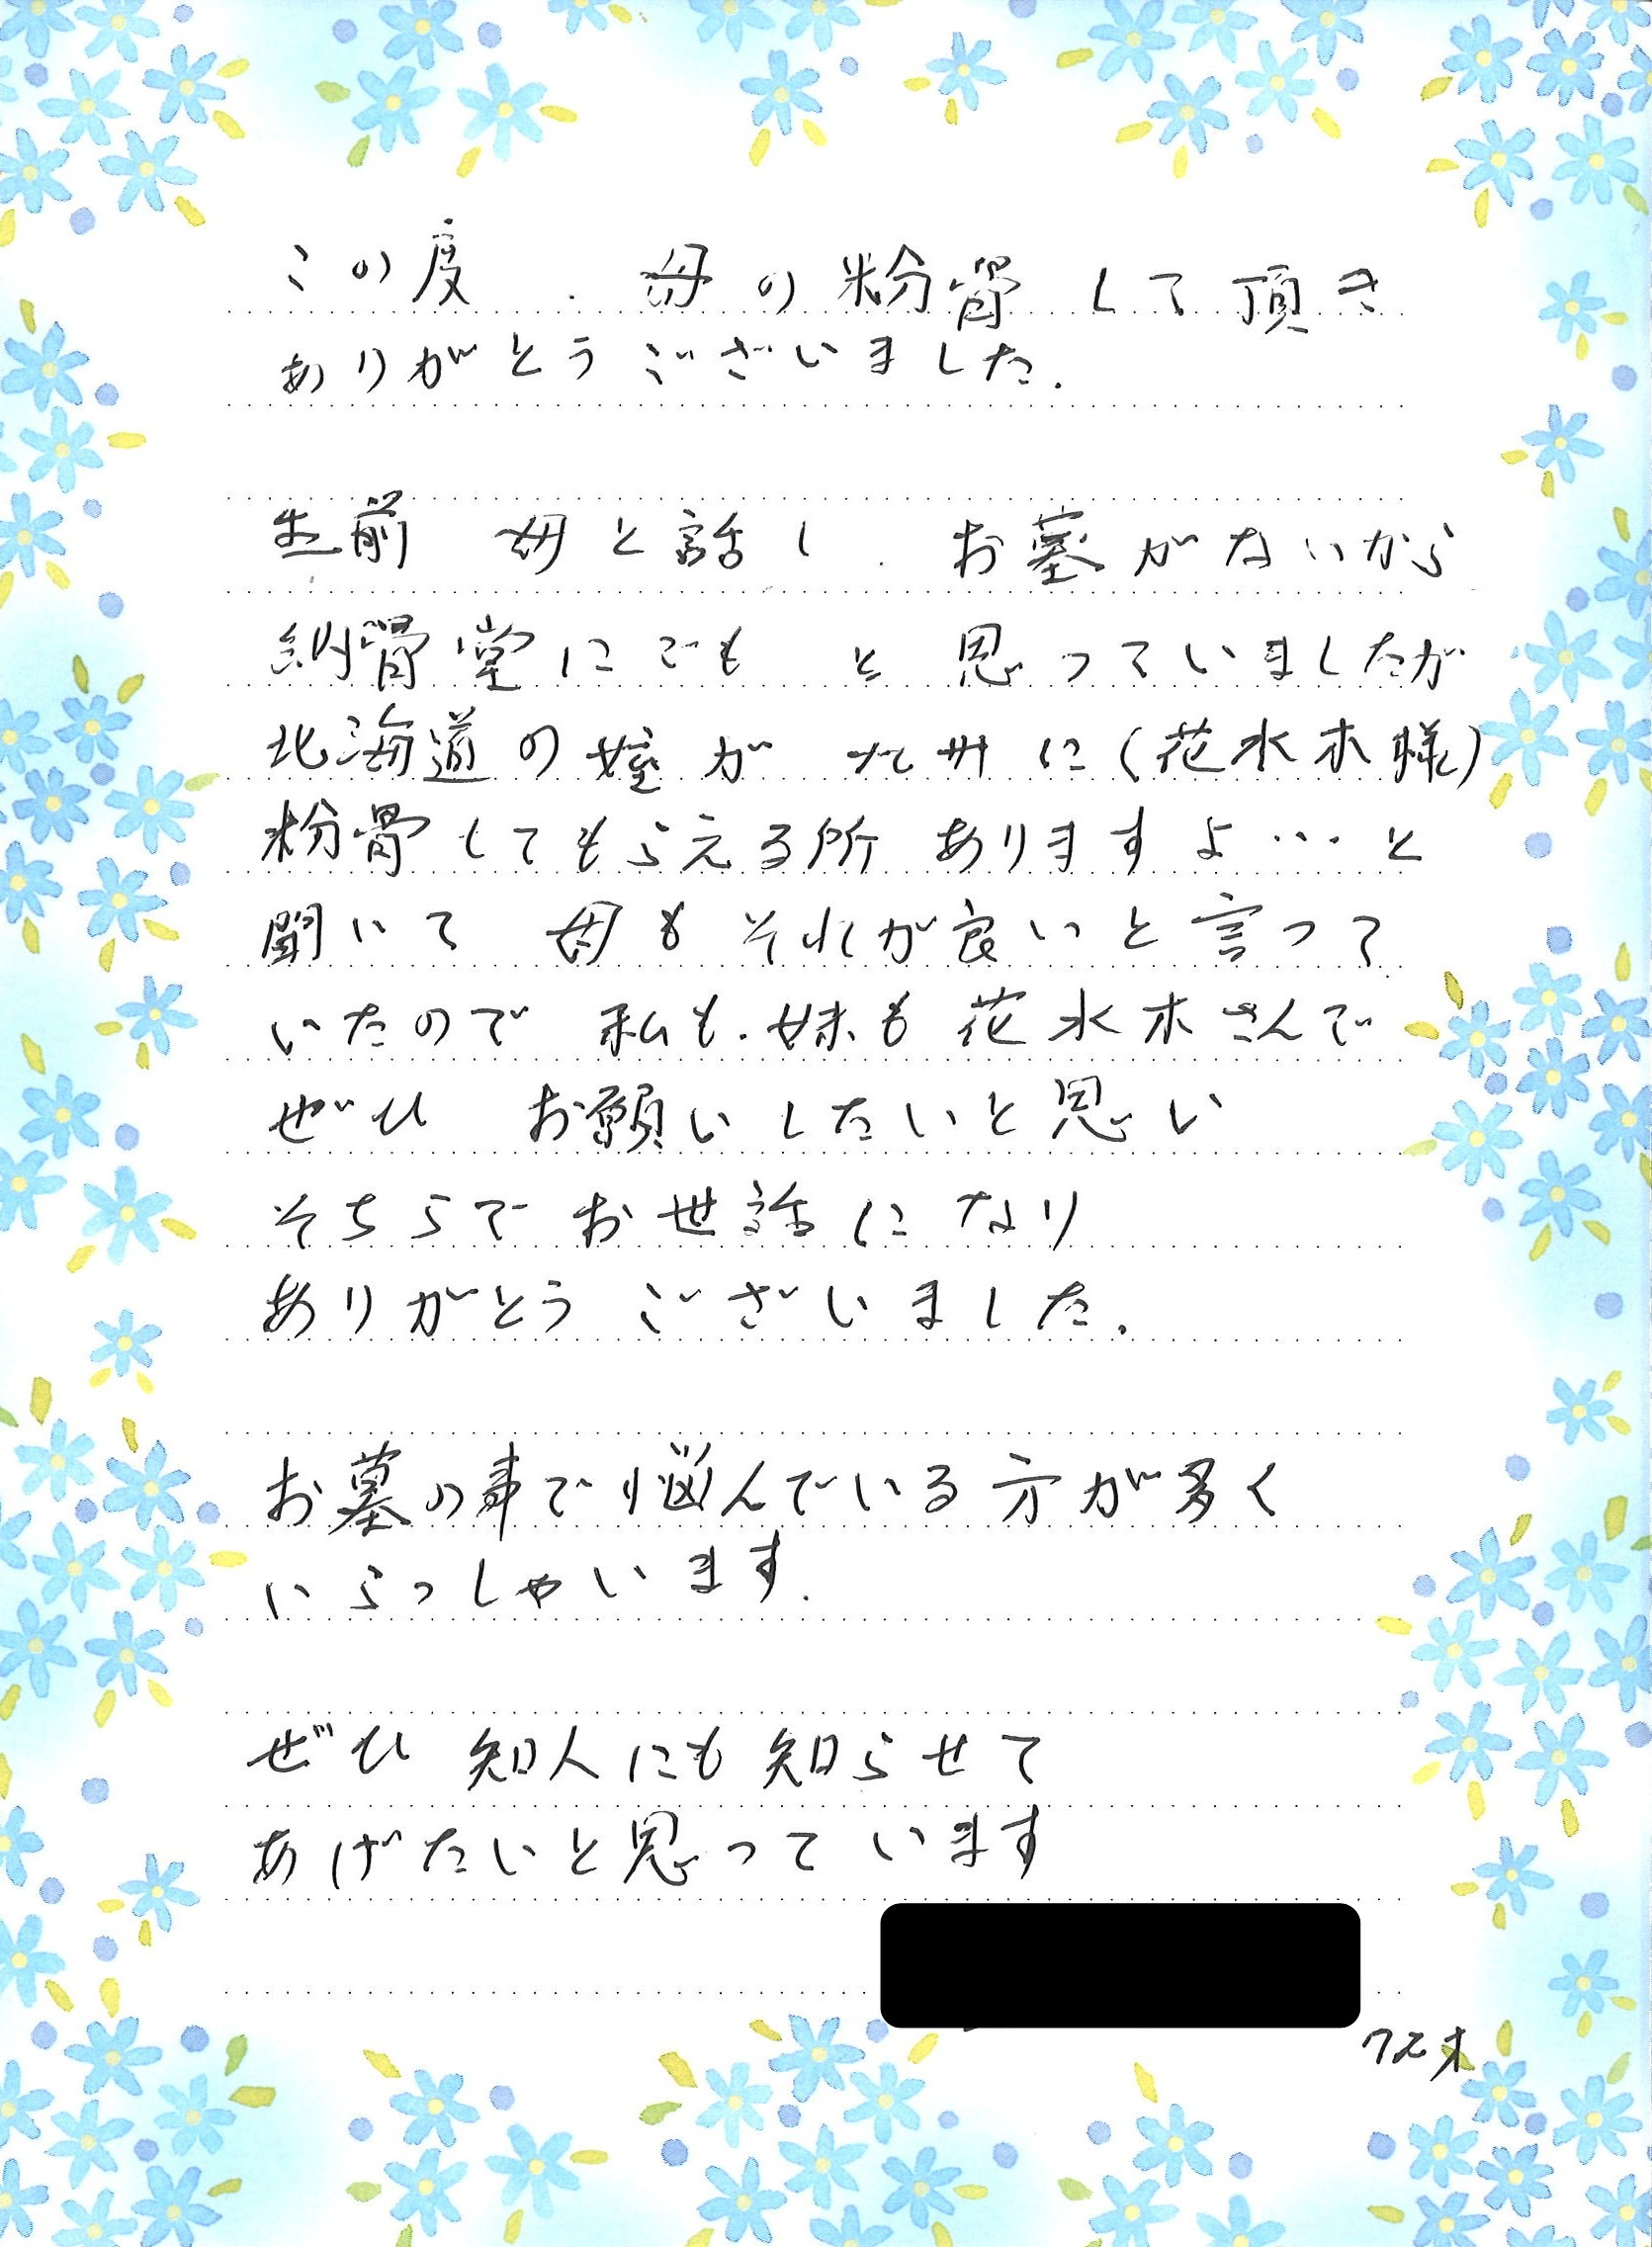 この度、母の粉骨して頂き
ありがとうございました.
生前 母と話し、お墓がないから
納骨堂にでも と思っていましたが
北海道の姪が 九州に(花水木様)
粉骨してもらえる所 ありますよ…と
聞いて 母もそれが良いと言って
いたので 私も.妹も 花水木さんで
ぜひ お願いしたいと思い
そちらで お世話になり
ありがとうございました.
お墓の事で悩んでいる方が多く
いらっしゃいます.
ぜひ 知人にも知らせて
あげたいと思っています
72才